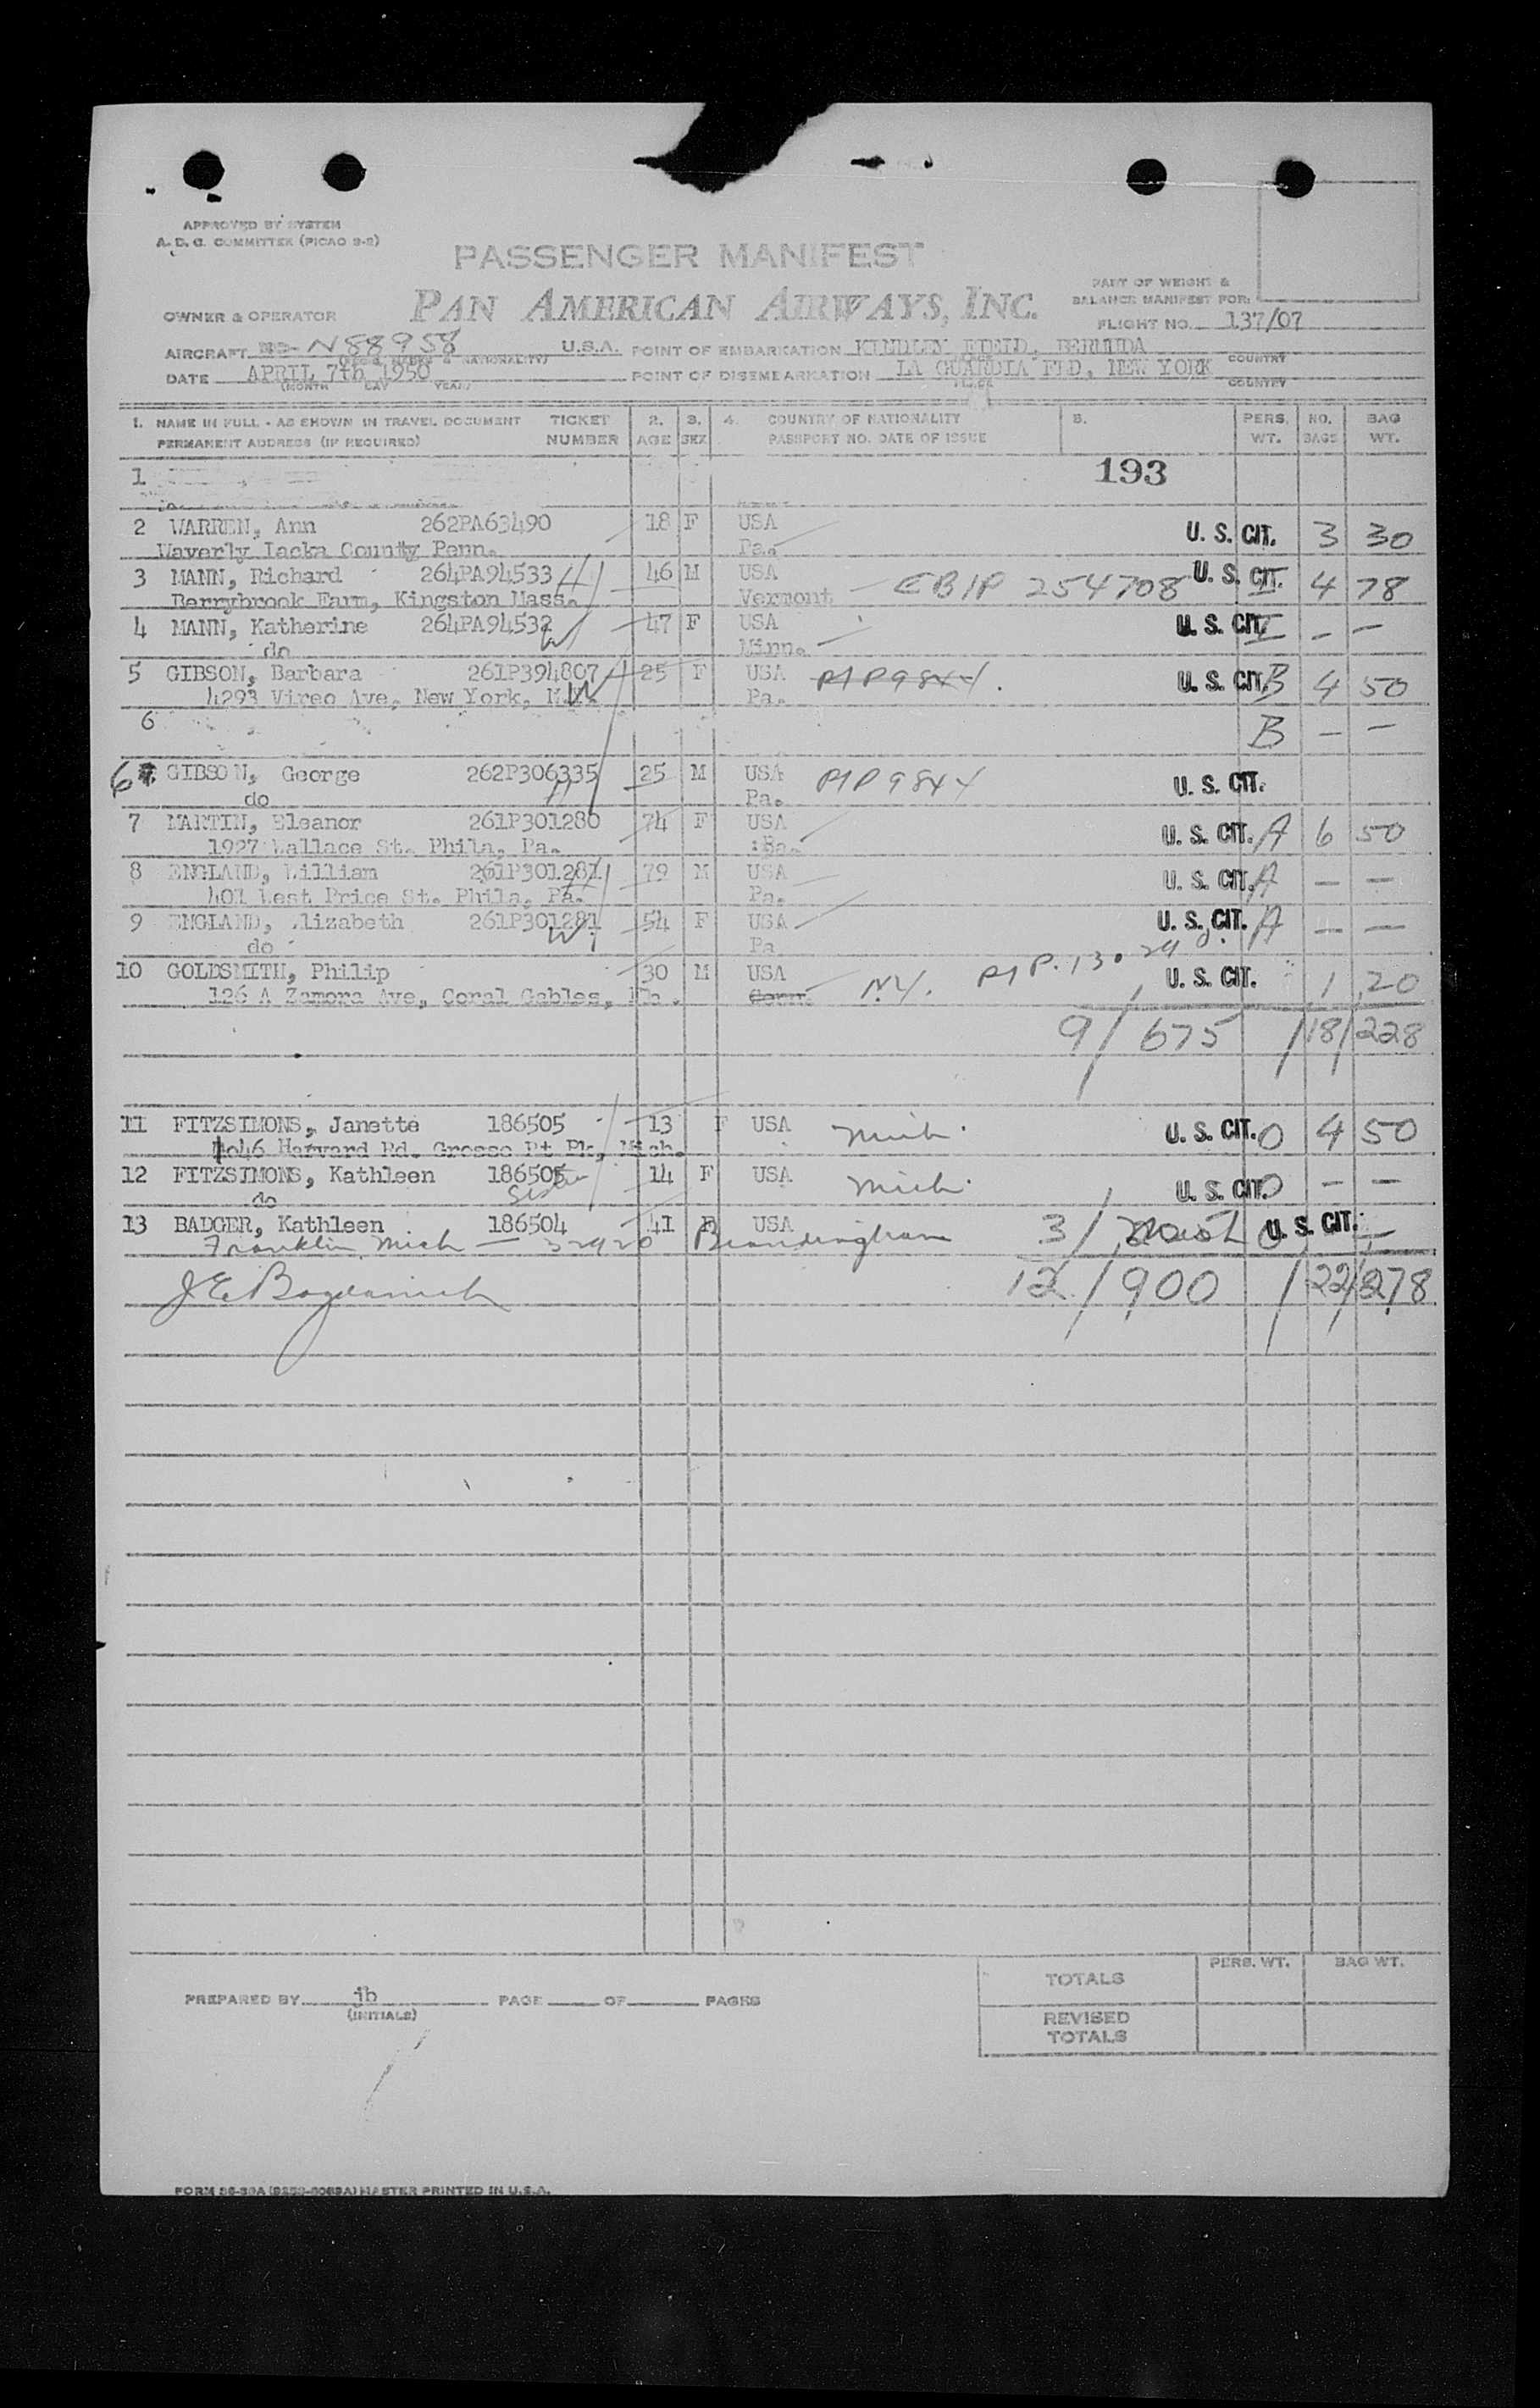 APPROVED BY SYSTEM
A. D. C. COMMITTEE (PICAO 9-2)
PASSENGER MANIFEST
PAN AMERICAN AIRWAYS, INC.
PART OF WEIGHT &
BALANCE MANIFEST FOR:
FLIGHT NO. 137/07
OWNER & OPERATOR
AIRCRAFT N88958 U.S.A. POINT OF EMBARKATION KINDLEY FIELD, BERMUDA
DATE APRIL 7th 1950 POINT OF DISEMBARKATION LA GUARDIA FLD, NEW YORK COUNTRY
(MONTH DAY YEAR) PLACE COUNTRY
1. NAME IN FULL - AS SHOWN IN TRAVEL DOCUMENT TICKET 2. 3. 4. COUNTRY OF NATIONALITY PERS. NO. BAG
PERMANENT ADDRESS (IF REQUIRED) NUMBER AGE SEX PASSPORT NO. DATE OF ISSUE WT. BAGS WT.
1 193
2 WARREN, Ann 262PA63490 18 F USA U. S. CIT. 3 30
Waverly Lacka County Penn. Pa.
3 MANN, Richard 264PA94533 H 46 M USA U. S. CIT. 4 78
Berrybrook Farm, Kingston Mass. Vermont EBIP 254708
4 MANN, Katherine 264PA94532 W 47 F USA U. S. CIT. - -
do Minn.
5 GIBSON, Barbara 261P394807 W 25 F USA MP9844 U. S. CIT. B 4 50
4293 Vireo Ave, New York, N.Y. Pa.
6 B - -
6 GIBSON, George 262P306335 H 25 M USA MP9844 U. S. CIT.
do Pa.
7 MARTIN, Eleanor 261P301280 74 F USA U. S. CIT. A 6 50
1927 Wallace St. Phila, Pa. Pa.
8 ENGLAND, William 261P301281 H 79 M USA U. S. CIT. A - -
401 West Price St. Phila, Pa. Pa.
9 ENGLAND, Elizabeth 261P301281 W 54 F USA U. S. CIT. A - -
do Pa
10 GOLDSMITH, Philip 30 M USA U. S. CIT. 1 20
126 A Zamora Ave, Coral Gables, Fla. Conn. N.Y.
9/ 675 /18/228
11 FITZSIMONS, Janette 186505 13 F USA Mich. U. S. CIT. O 4 50
1046 Harvard Rd. Grosse Pt Pk, Mich.
12 FITZSIMONS, Kathleen 186505 14 F USA Mich. U. S. CIT. O - -
do Sister
13 BADGER, Kathleen 186504 41 F USA 3/ U. S. CIT. -
Franklin, Mich
12/900 /22/278
TOTALS PERS. WT. BAG WT.
PREPARED BY jb PAGE OF PAGES
(INITIALS)
REVISED
TOTALS
FORM 36-38A MASTER PRINTED IN U.S.A.